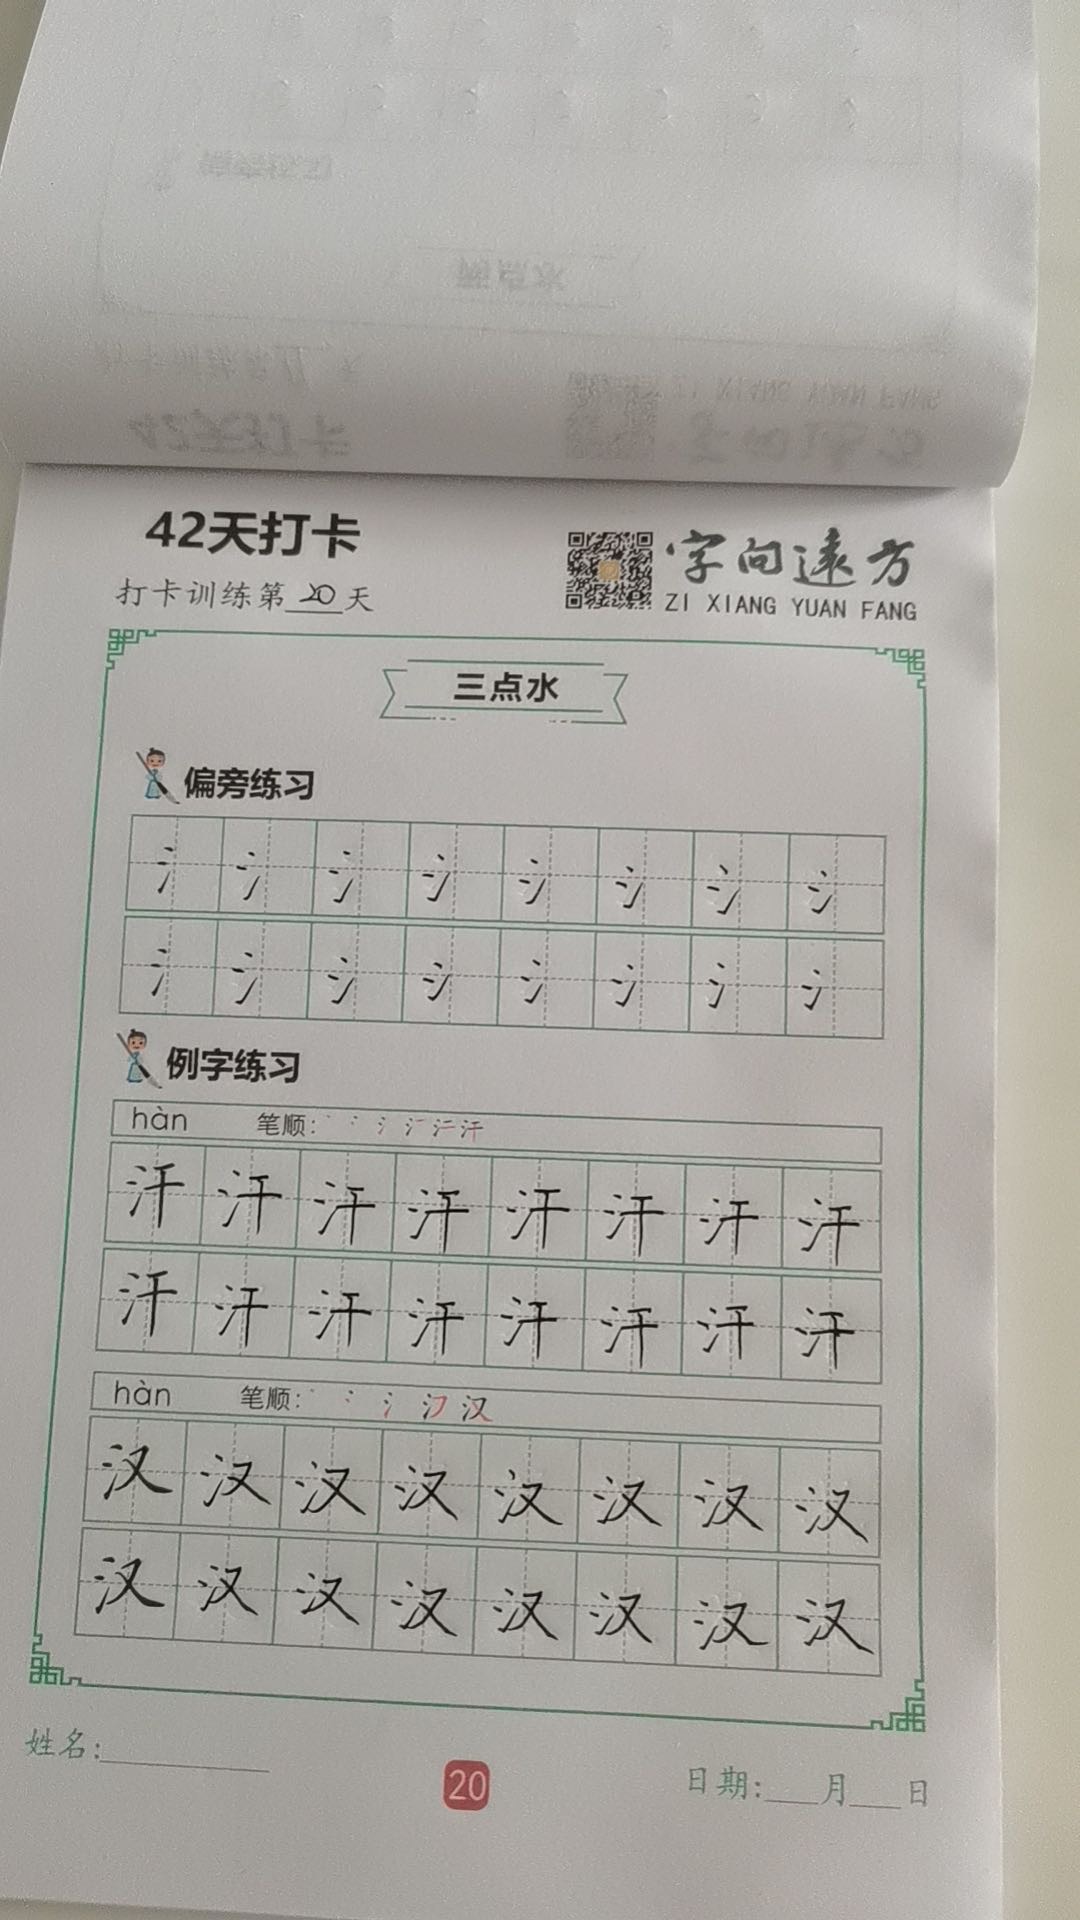 42天打卡
字向远方
打卡训练第20天
ZI XIANG YUAN FANG
三点水
偏旁练习
氵 氵 氵 氵 氵 氵 氵 氵
氵 氵 氵 氵 氵 氵 氵 氵
例字练习
hàn 笔顺:
汗 汗 汗 汗 汗 汗 汗 汗
汗 汗 汗 汗 汗 汗 汗 汗
hàn 笔顺: 汉
汉 汉 汉 汉 汉 汉 汉 汉
汉 汉 汉 汉 汉 汉 汉 汉
姓名:
20
日期: 月 日